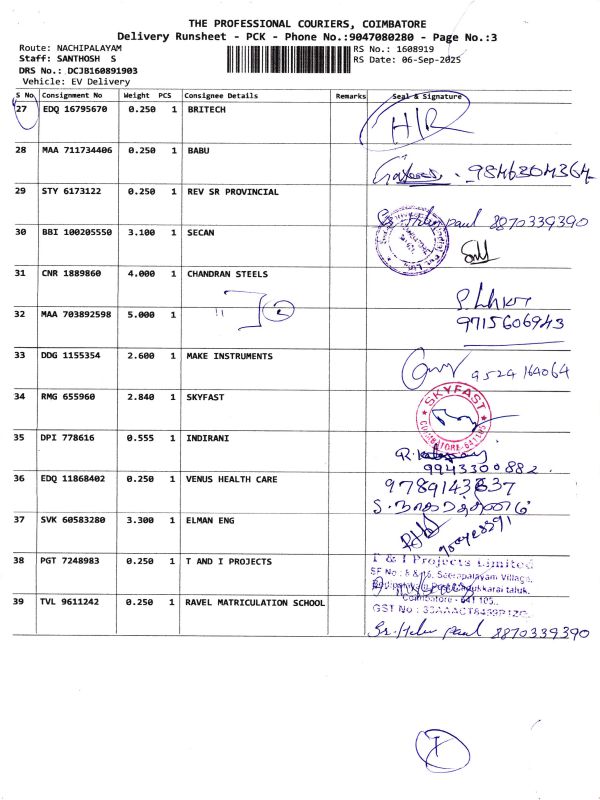 THE PROFESSIONAL COURIERS, COIMBATORE
Delivery Runsheet - PCK - Phone No.:9047080280 - Page No.:3
Route: NACHIPALAYAM RS No.: 1608919
Staff: SANTHOSH S RS Date: 06-Sep-2025
DRS No.: DCJB160891903
Vehicle: EV Delivery
S No. Consignment No Weight PCS Consignee Details Remarks Seal & Signature
27 EDQ 16795670 0.250 1 BRITECH H/R
28 MAA 711734406 0.250 1 BABU 9846304364
29 STY 6173122 0.250 1 REV SR PROVINCIAL Sr. Helen paul 8870339390
30 BBI 100205550 3.100 1 SECAN
31 CNR 1889860 4.000 1 CHANDRAN STEELS
32 MAA 703892598 5.000 1 " 2 9715606943
33 DDG 1155354 2.600 1 MAKE INSTRUMENTS 9524164064
34 RMG 655960 2.840 1 SKYFAST SKYFAST COIMBATORE-641105
35 DPI 778616 0.555 1 INDIRANI 9943300882.
36 EDQ 11868402 0.250 1 VENUS HEALTH CARE
37 SVK 60583280 3.300 1 ELMAN ENG
38 PGT 7248983 0.250 1 T AND I PROJECTS T & I Projects Limited
39 TVL 9611242 0.250 1 RAVEL MATRICULATION SCHOOL
Sr. Helen paul 8870339390